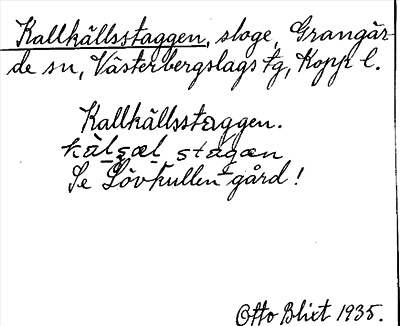 Kallkällsstaggen, sloge, Grangär-
de sn, Västerbergslags tg, Kopp l.
Kallkällsstaggen.
stagæn
Se Lövkullen gård!
Otto Blixt 1935.